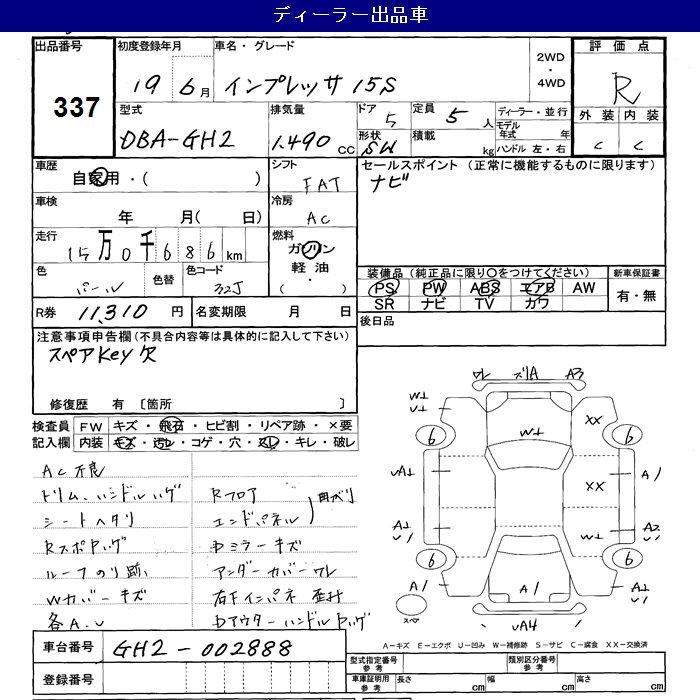 ディーラー出品車
出品番号
337
初度登録年月
19年6月
車名・グレード
インプレッサ 15S
2WD
・
4WD
評価点
R
型式
DBA-GH2
排気量
1.490 CC
ドア
5
定員
5人
形状
SW
積載
kg
ディーラー・並行
モデル年式 年
ハンドル 左・右
外装 内装
C C
車歴
自家用・( )
シフト
FAT
セールスポイント (正常に機能するものに限ります)
ナビ
車検
年 月( 日)
冷房
AC
走行
15万0千686km
燃料
ガソリン
軽油
・
色
パール
色替
色コード
32J
装備品 (純正品に限り○をつけてください)
PS PW ABS エアB AW
SR ナビ TV カワ
新車保証書
有・無
R券 11,310 円
名変期限 月 日
後日品
注意事項申告欄 (不具合内容等は具体的に記入して下さい)
スペアKey欠
修復歴 有 [箇所 ]
検査員記入欄
FW キズ・飛石・ヒビ割・リペア跡・×要
内装 キズ・汚れ・コゲ・穴・スレ・キレ・破レ
AC不良
トリム、ハンドルハゲ
シートヘタリ
RスポPハゲ
ルーフのり跡
Wカバーキズ
各A.U
Rフロア
エンドパネル
凹ベリ
Dミラーキズ
アンダーカバーワレ
右下インパネ 歪み
Dアウターハンドル Pハゲ
ワレ ズリA A3
W⊥
U⊥
6
6
W⊥
XX
UA⊥
XX
A1
A⊥
U1
W⊥
A2
U1
6
6
A1
A1
A⊥
U1
スペア
UA4
A-キズ E-エクボ U-凹み W-補修跡 S-サビ C-腐食 XX-交換済
車台番号
GH2-002888
登録番号
型式指定番号
参考
類別区分番号
参考
車庫証明用
参考
長さ cm
幅 cm
高さ cm